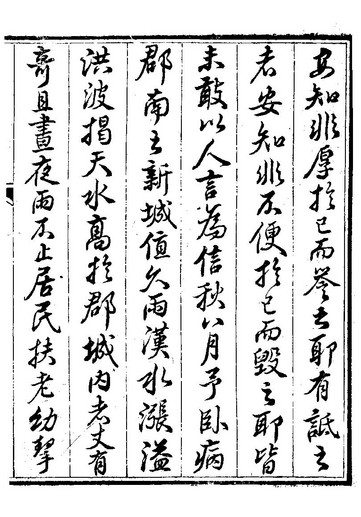 安知非厚於己而譽之耶有詆之
者安知非不便於己而毀之耶皆
未敢以人言為信秋八月予臥病
郡南之新城值久雨漢水漲溢
洪波揭天水高於郡城內者丈有
奇且晝夜雨不止居民扶老幼挈